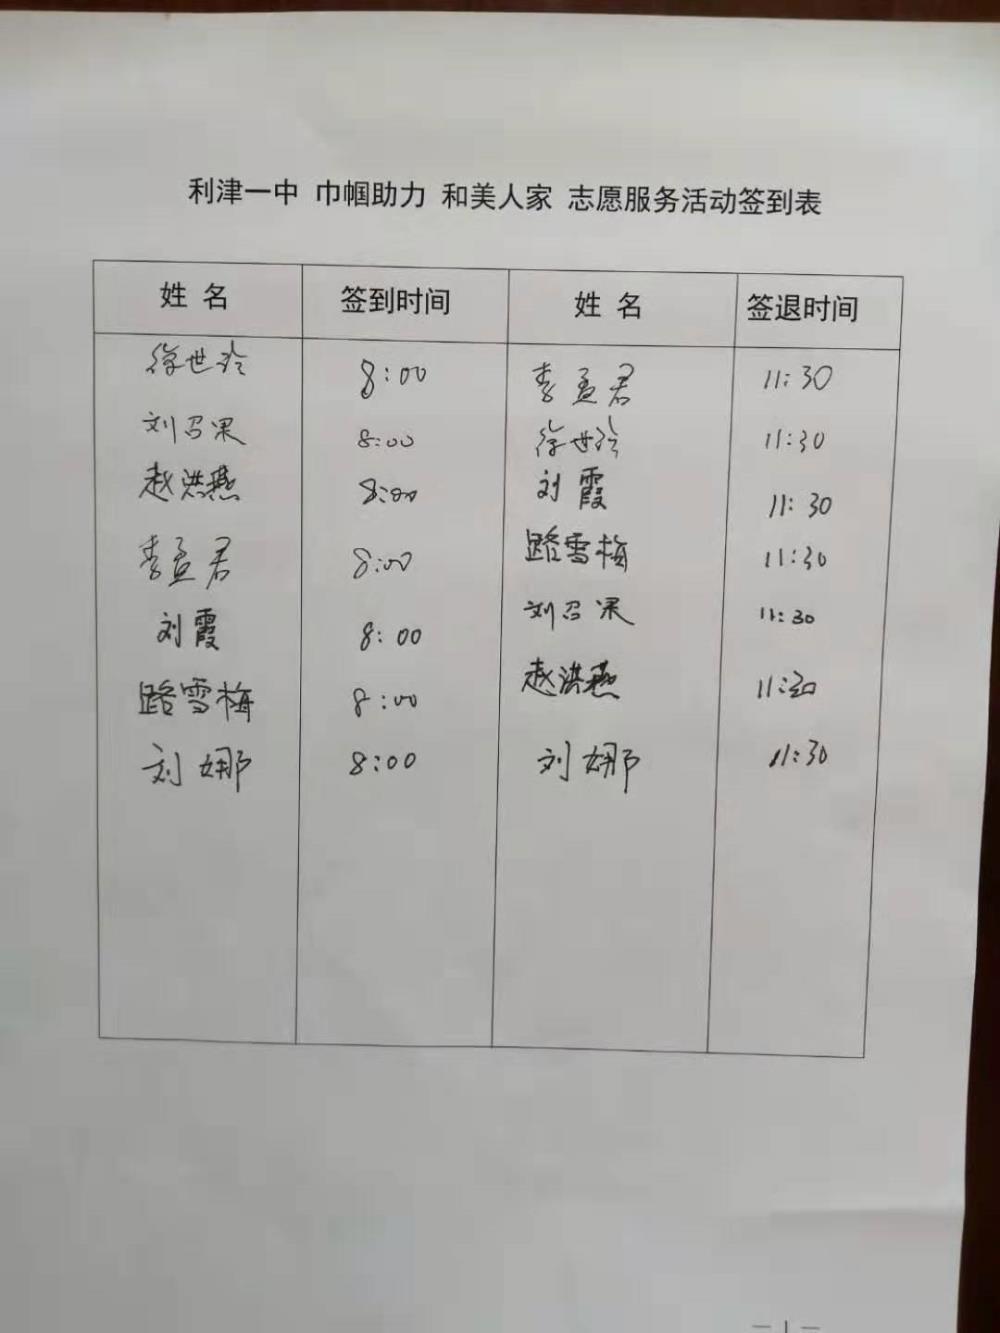 利津一中 巾帼助力 和美人家 志愿服务活动签到表
姓 名 签到时间 姓 名 签退时间
徐世玲 8:00 李孟君 11:30
刘召果 8:00 徐世玲 11:30
赵洪燕 8:00 刘霞 11:30
李孟君 8:00 路雪梅 11:30
刘霞 8:00 刘召果 11:30
路雪梅 8:00 赵洪燕 11:30
刘娜 8:00 刘娜 11:30